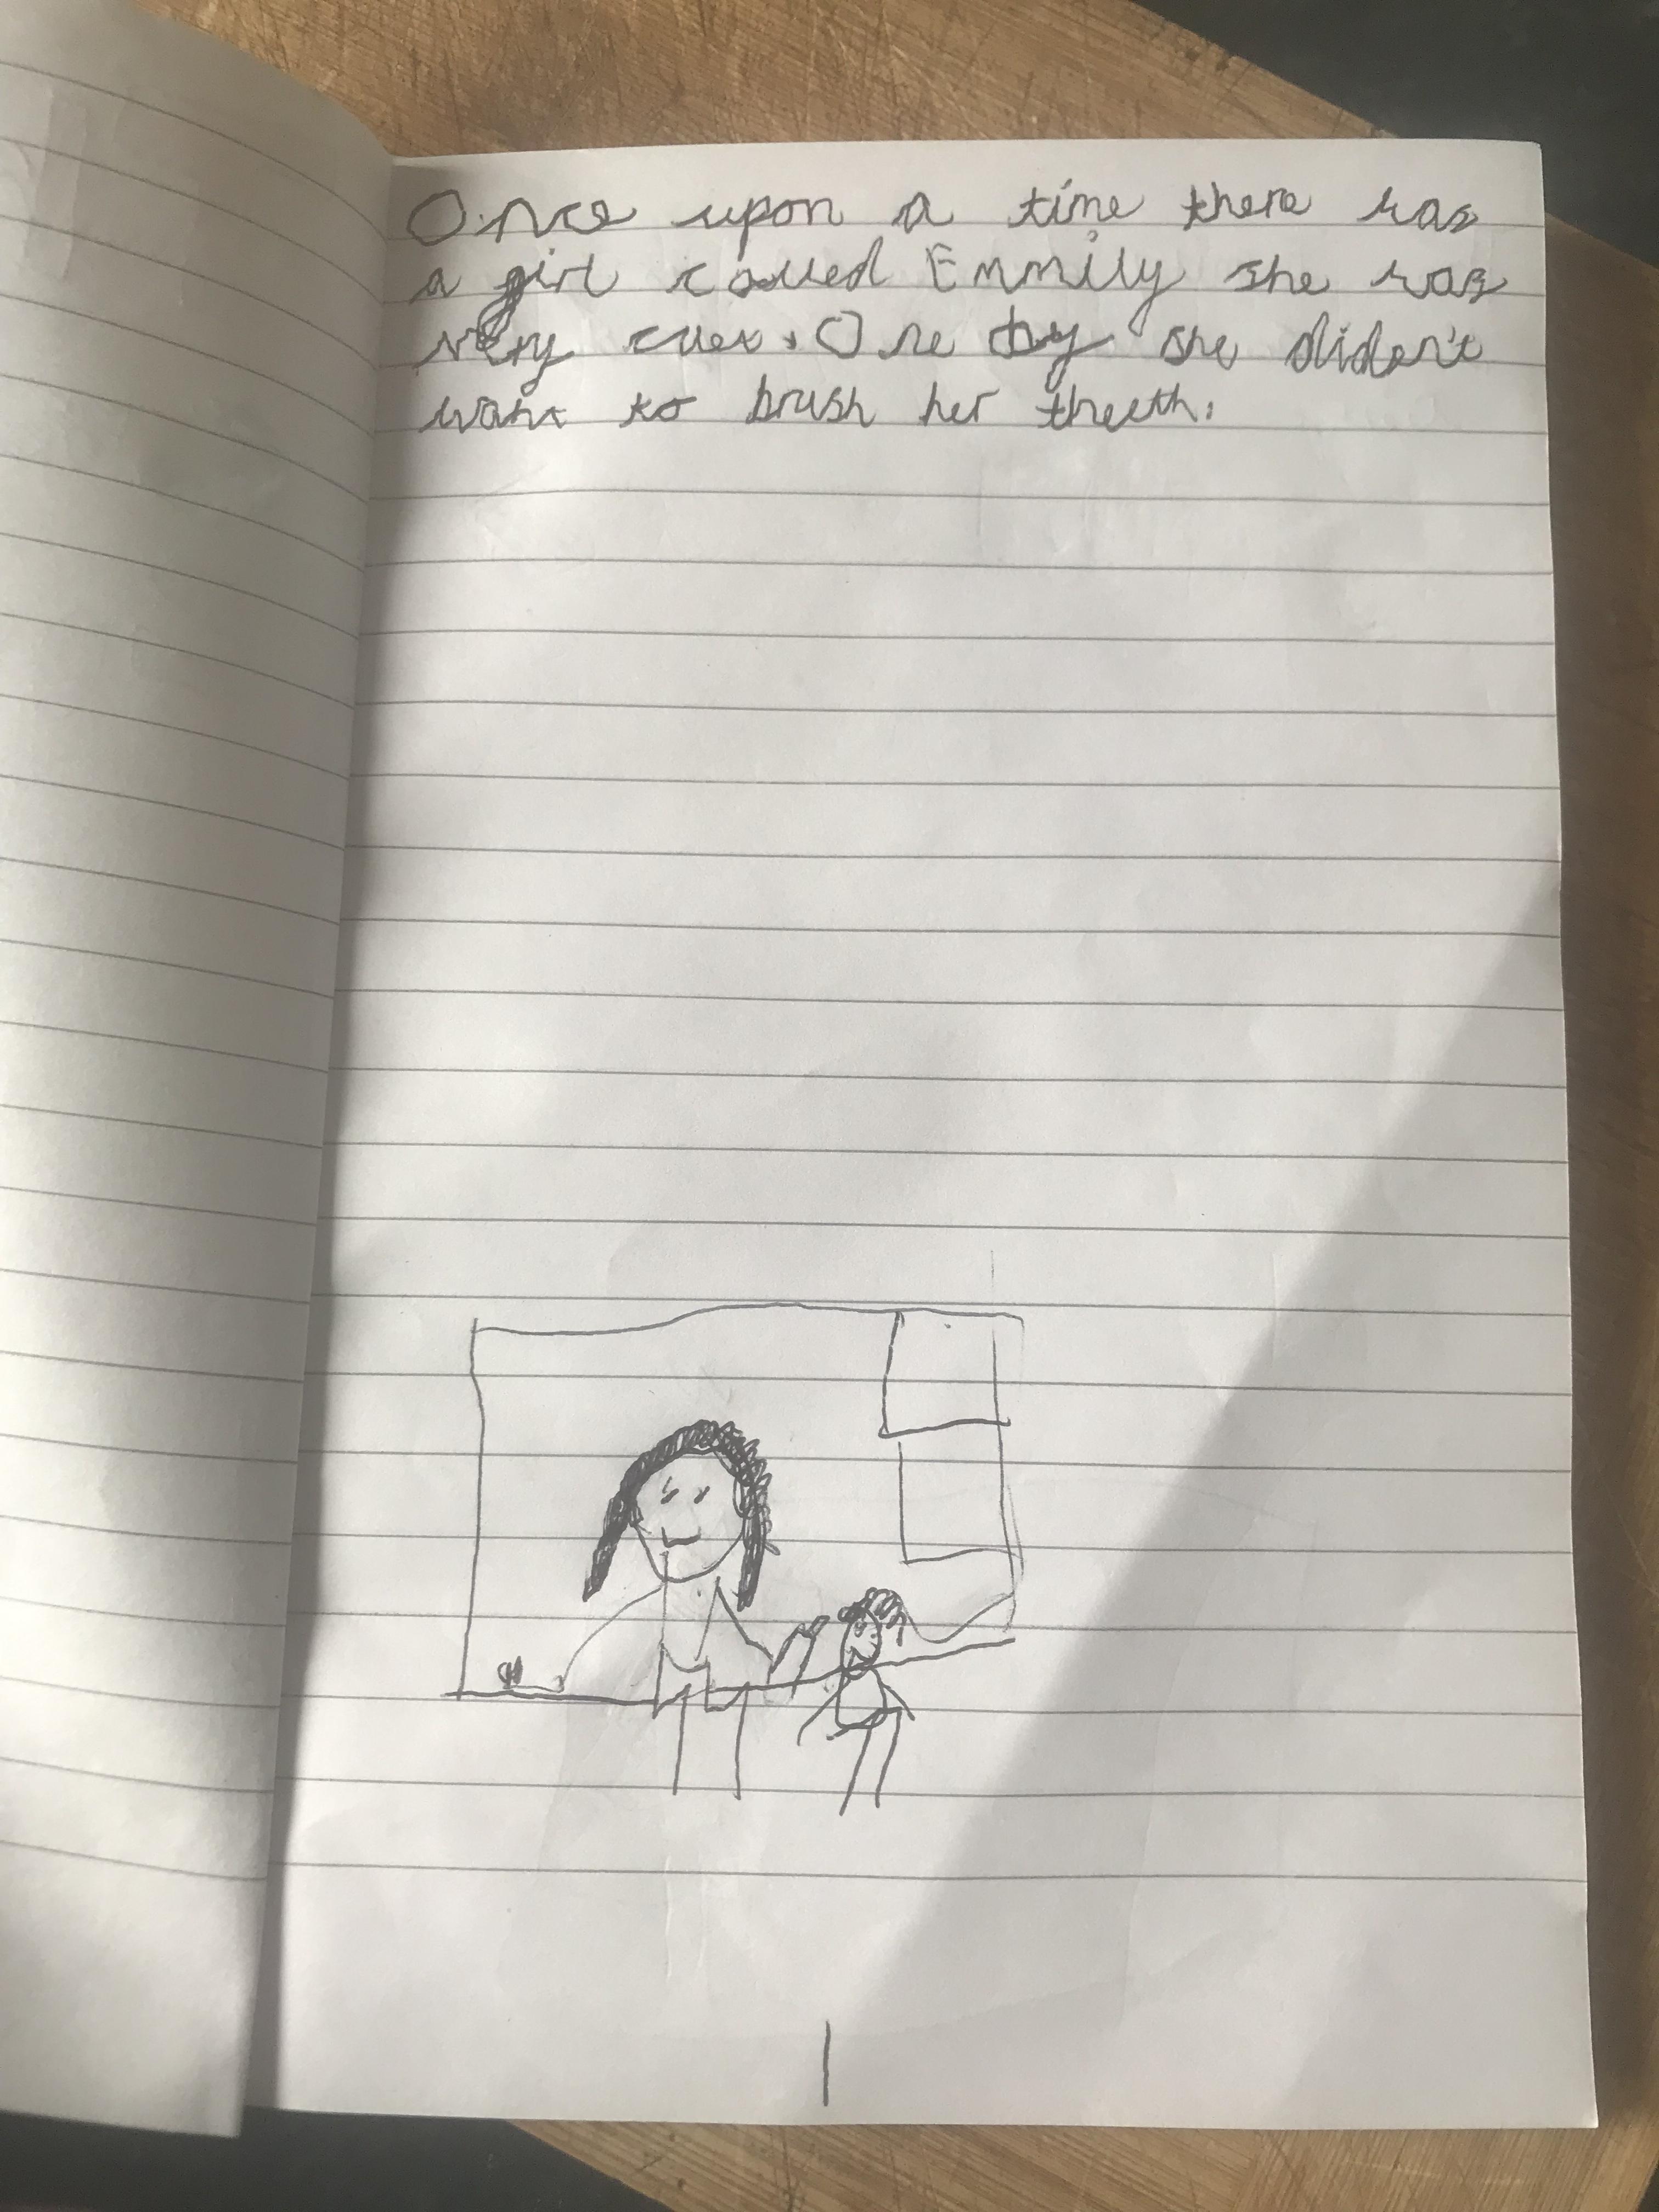 Once upon a time there was
a girl called Emmily she was
very One day she diden't
want to brush her theeth.
1